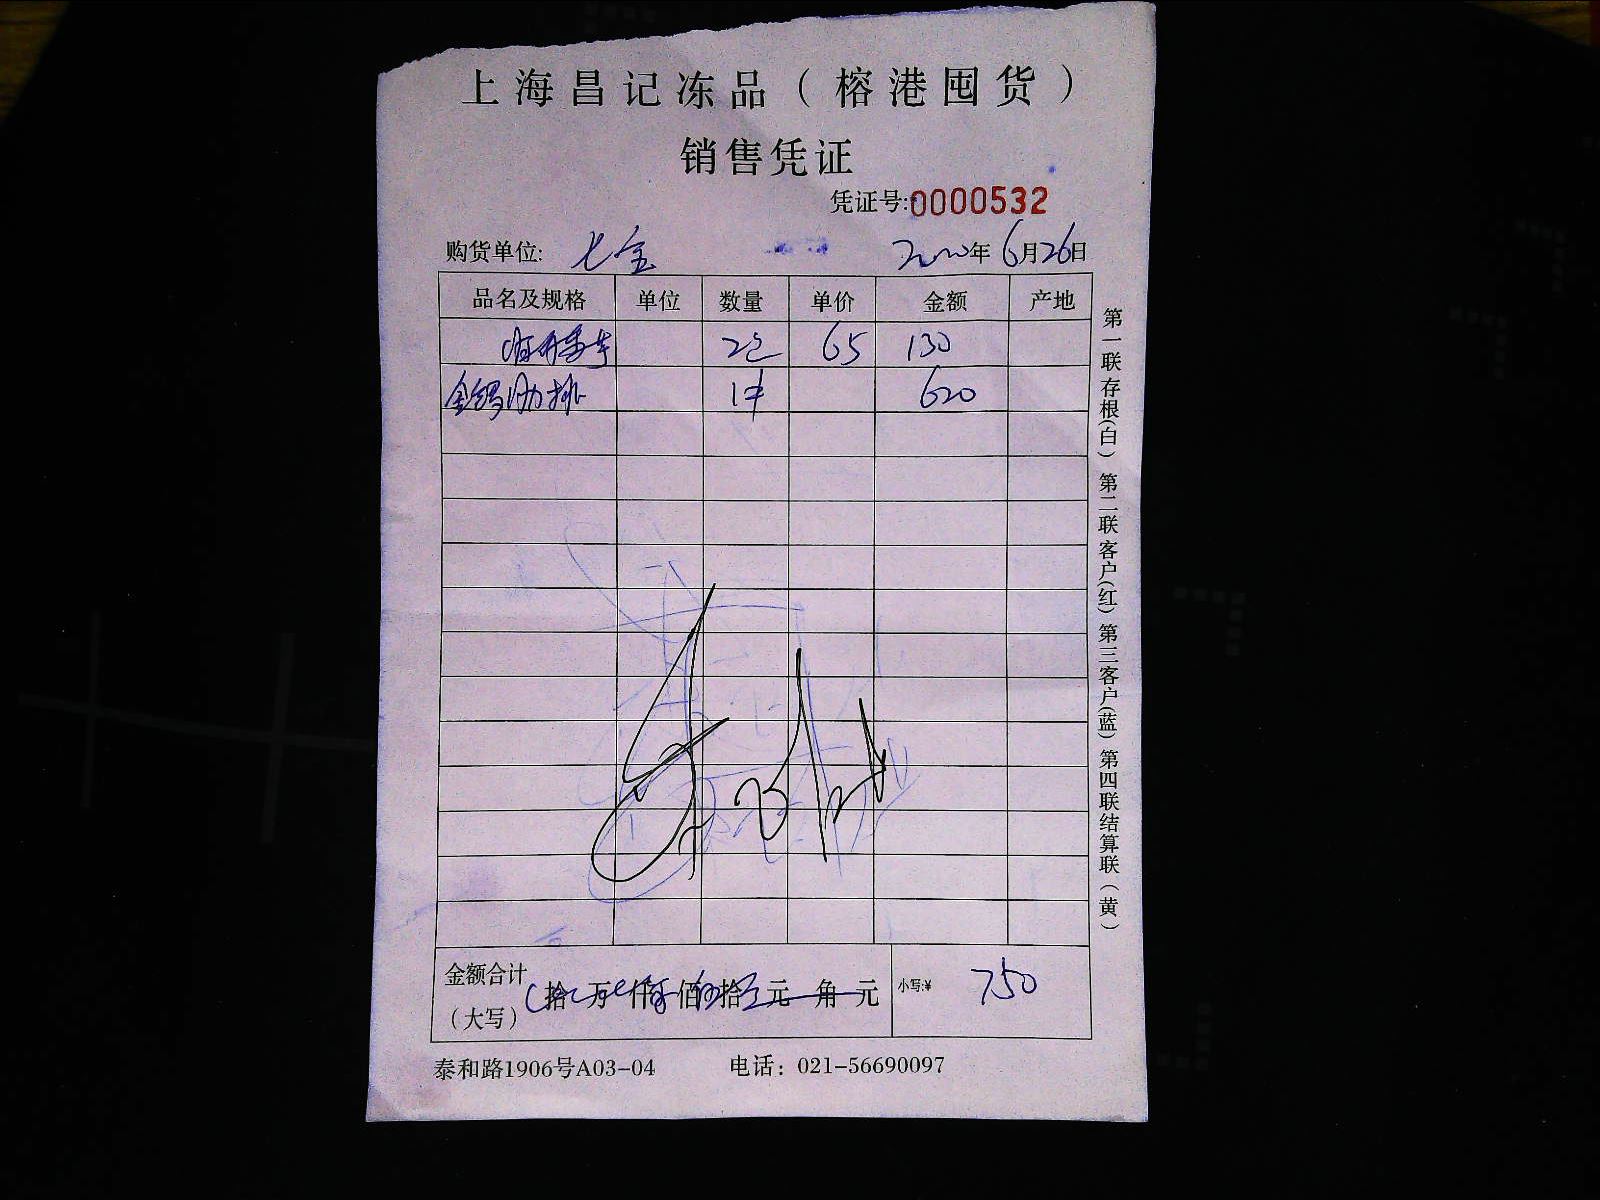 上海昌记冻品（榕港囤货）
销售凭证
凭证号:0000532
购货单位: 七宝 年 6月26日
品名及规格 单位 数量 单价 金额 产地
65 130
金锣肋排 1件 620
第一联存根(白) 第二联客户(红) 第三客户(蓝) 第四联结算联（黄）
金额合计（大写） 拾 万 仟 佰 拾 元 角 元 小写:¥ 750
泰和路1906号A03-04 电话：021-56690097